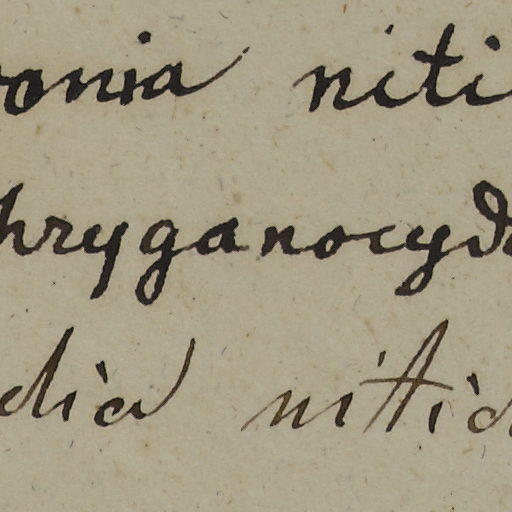 onia niti
hryganocyd
dia nitid